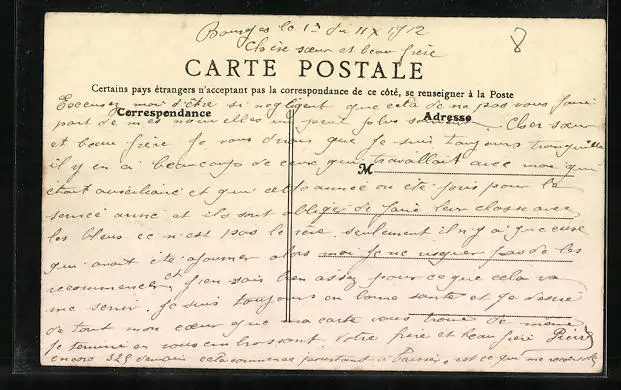 Bourges le 1er du 11 X 1912
8
Chère sœur et beau frère
CARTE POSTALE
Certains pays étrangers n'acceptant pas la correspondance de ce côté, se renseigner à la Poste
Excusez moi d'être si négligent que cela de ne pas vous faire
Correspondance
Adresse
part de mes nouvelles un peu plus souvent. Cher sœur
et beau frère Je vous dirais que Je suis toujours tranquille
il y en a beaucoup de ceux qui travaillait avec moi qui
M
était auxiliaire et qui cette année on été pris pour le
service armé et ils sont obliger de faire leur classe avec
les bleus ce n'est pas le rêve seulement il n'y a que ceux
qui avait été ajourner alors moi je ne risquer pas de les
recommencer et j'en sais bien assez pour ce que cela va
me servir. Je suis toujours en bonne santé et je désire
de tout mon cœur que ma carte vous trouve de même
Je termine en vous embrassant. Votre frère et beau frère
encore 325 demain cela commence pourtant à